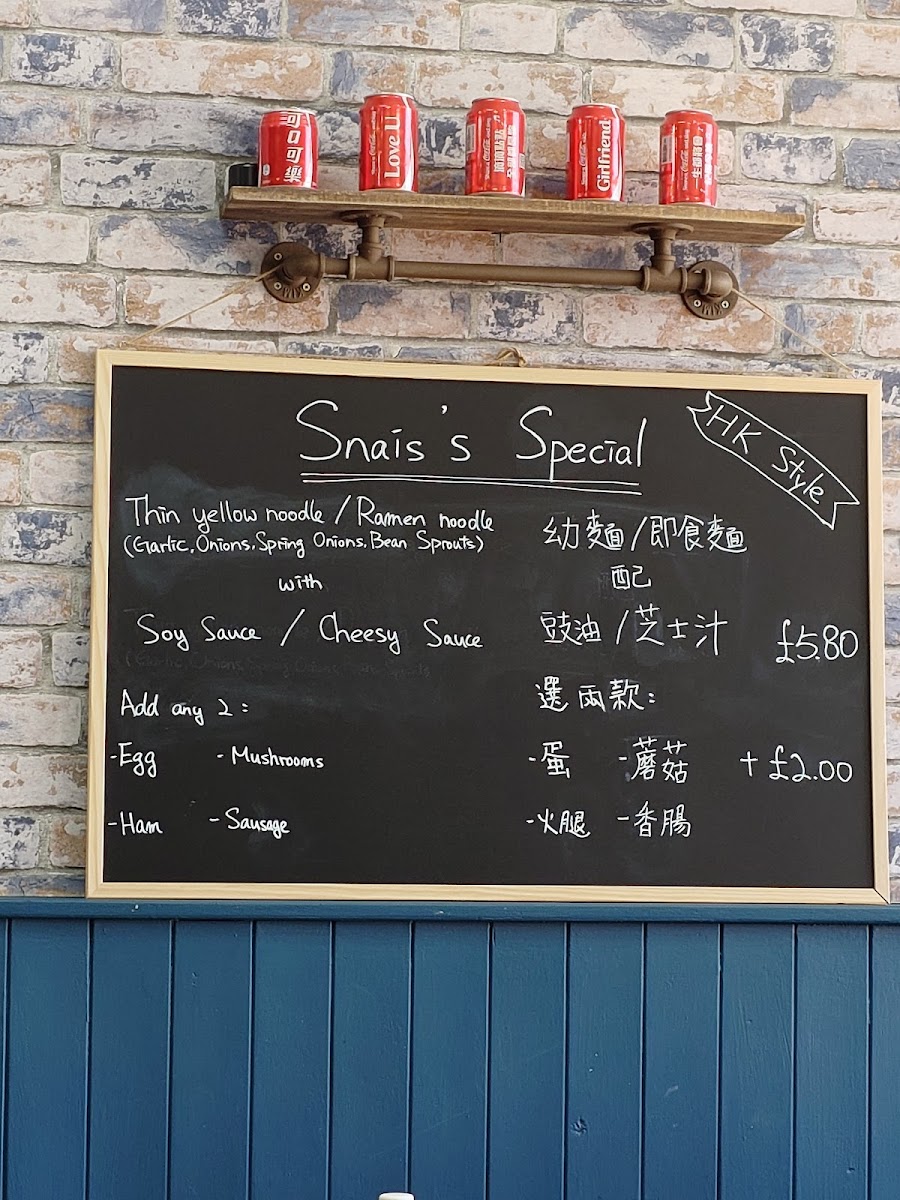 可口可樂
Love U
Girlfriend
Snais's Special
HK Style
Thin yellow noodle / Ramen noodle
(Garlic, Onions, Spring Onions, Bean Sprouts)
with
Soy Sauce / Cheesy Sauce
Add any 2 :
-Egg -Mushrooms
-Ham -Sausage
幼麵/即食麵
配
豉油/芝士汁 £5.80
選兩款:
-蛋 -蘑菇 + £2.00
-火腿 -香腸